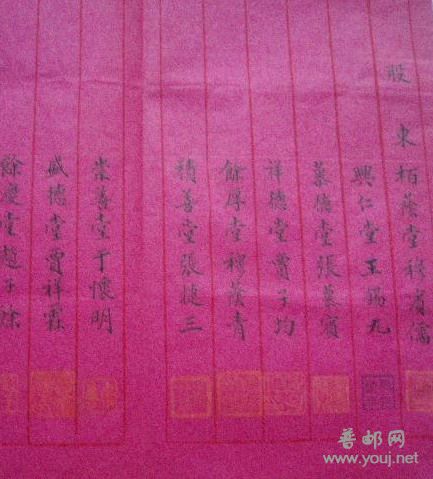 股東
栢蔭堂穆宥儒
興仁堂王錫九
慕德堂張慕賓
祥德堂賈子均
餘厚堂穆蔭青
積善堂張捷三
崇善堂丁懷明
盛德堂賈祥霖
餘慶堂趙子餘
普邮网
www.youj.net